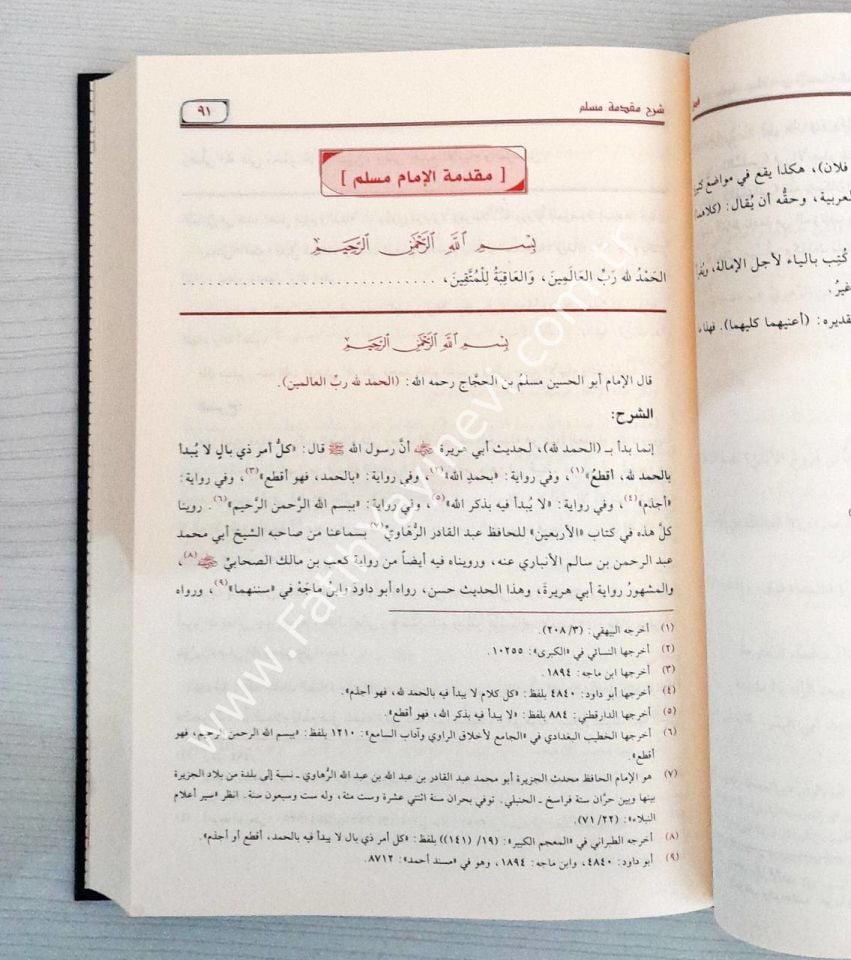 شرح مقدمة مسلم
٩١
[ مقدمة الإمام مسلم ]
بِسْمِ اللَّهِ الرَّحْمَٰنِ الرَّحِيمِ
الحَمْدُ لله رَبِّ العَالَمِينَ، وَالعَاقِبَةُ لِلْمُتَّقِينَ، ............................
بِسْمِ اللَّهِ الرَّحْمَٰنِ الرَّحِيمِ
قال الإمام أبو الحسين مسلمُ بن الحجَّاج رحمه الله: (الحمد لله ربِّ العالمين).
الشرح:
إنما بدأ بـ (الحمد لله)، لحديث أبي هريرة ﵁ أنَّ رسول الله ﷺ قال: «كلُّ أمر ذي بالٍ لا يُبدأ
بالحمد لله، أقطعُ»(١)، وفي رواية: «بحمدِ الله»(٢)، وفي رواية: «بالحمد، فهو أقطع»(٣)، وفي رواية:
«أجذم»(٤)، وفي رواية: «لا يُبدأ فيه بذكر الله»(٥)، وفي رواية: «ببسم الله الرَّحمن الرَّحيم»(٦). روينا
كلَّ هذه في كتاب «الأربعين» للحافظ عبد القادر الرُّهَاوِيِّ(٧) بسماعنا من صاحبه الشيخ أبي محمد
عبد الرحمن بن سالم الأنباري عنه، ورويناه فيه أيضاً من رواية كعب بن مالك الصحابيِّ ﵁(٨)،
والمشهورُ رواية أبي هريرةَ، وهذا الحديث حسن، رواه أبو داودَ وابن ماجَهْ في «سننهما»(٩)، ورواه
(١) أخرجه البيهقي: (٢٠٨/٣).
(٢) أخرجها النسائي في «الكبرى»: ١٠٢٥٥.
(٣) أخرجها ابن ماجه: ١٨٩٤.
(٤) أخرجها أبو داود: ٤٨٤٠ بلفظ: «كل كلام لا يبدأ فيه بالحمد لله، فهو أجذم».
(٥) أخرجها الدارقطني: ٨٨٤ بلفظ: «لا يبدأ فيه بذكر الله، فهو أقطع».
(٦) أخرجها الخطيب البغدادي في «الجامع لأخلاق الراوي وآداب السامع»: ١٢١٠ بلفظ: «ببسم الله الرحمن الرحيم، فهو
أقطع».
(٧) هو الإمام الحافظ محدث الجزيرة أبو محمد عبد القادر بن عبد الله بن عبد الله الرُّهاوي ـ نسبة إلى بلدة من بلاد الجزيرة
بينها وبين حرَّان ستة فراسخ ـ الحنبلي. توفي بحران سنة اثنتي عشرة وست مئة، وله ست وسبعون سنة. انظر «سير أعلام
النبلاء»: (٧١/٢٢).
(٨) أخرجه الطبراني في «المعجم الكبير»: (١٩/ (١٤١)) بلفظ: «كل أمر ذي بال لا يبدأ فيه بالحمد، أقطع أو أجذم».
(٩) أبو داود: ٤٨٤٠، وابن ماجه: ١٨٩٤، وهو في «مسند أحمد»: ٨٧١٢.
فلان)، هكذا يقع في مواضع
لعربية، وحقُّه أن يُقال:
كُتِب بالياء لأجل الإمالة،
غيرُ.
قديره: (أعنيهما كليهما). فهذاء
www.Fatihyayinevi.com.tr